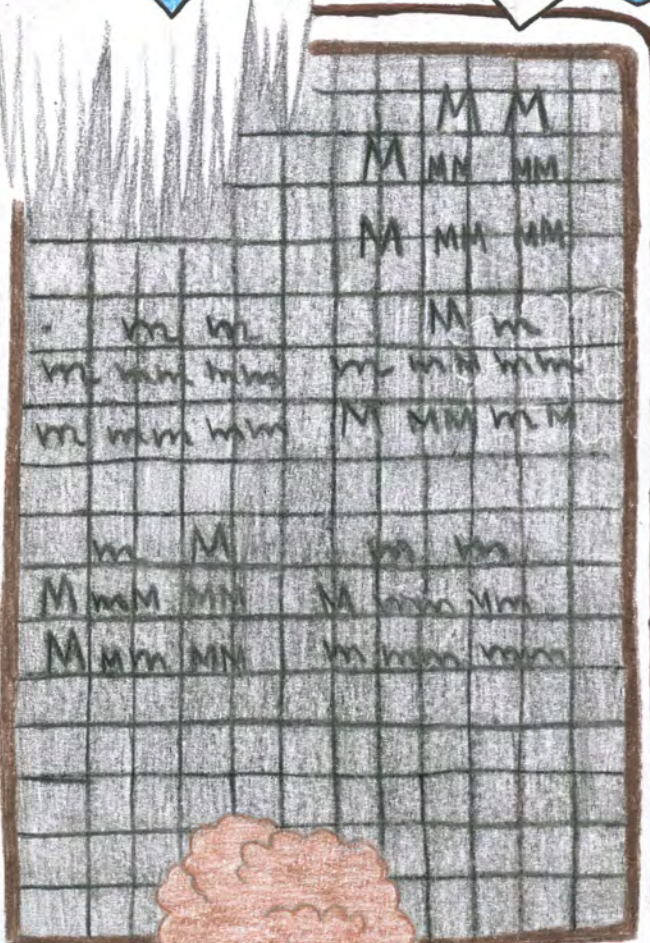 M M
M MM MM
M MM MM
m m
m mm mm
m mm mm
M m
m mM mm
M MM mM
m M
M mM MM
M Mm MM
m m
M mm Mm
m mm mm